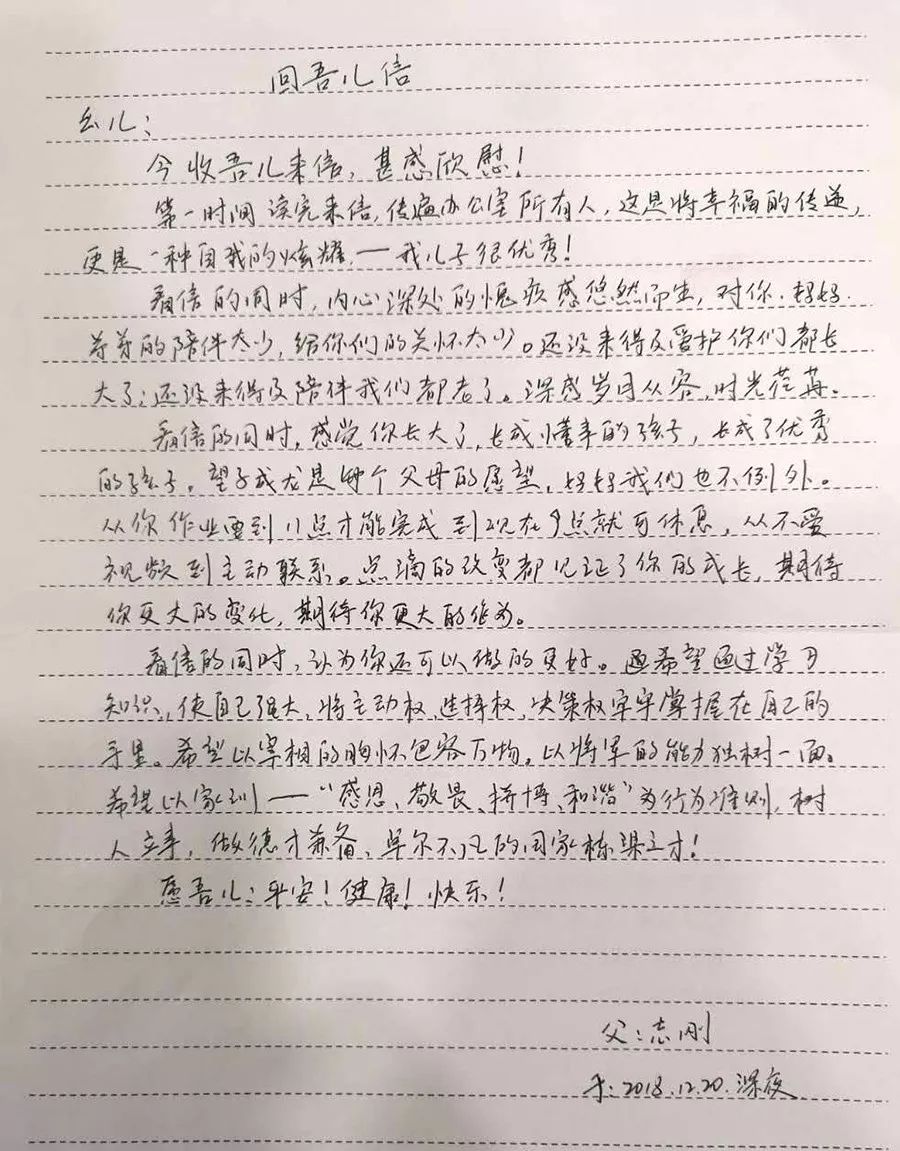 回吾儿信
幺儿：
今收吾儿来信，甚感欣慰！
第一时间读完来信，传遍办公室所有人，这是将幸福的传递，
更是一种自我的炫耀——我儿子很优秀！
看信的同时，内心深处的愧疚感悠然而生，对你、好好、
爷爷的陪伴太少，给你们的关怀太少。还没来得及爱护你们都长
大了；还没来得及陪伴我们都老了。深感岁月从容，时光荏苒。
看信的同时，感觉你长大了，长成懂事的孩子，长成了优秀
的孩子。望子成龙是每个父母的愿望，我们也不例外。
从你作业要到11点才能完成到现在9点就可休息，从不爱
视频到主动联系。点滴的改变都见证了你的成长，期待
你更大的变化，期待你更大的作为。
看信的同时，认为你还可以做的更好。希望通过学习
知识，使自己强大，将主动权、选择权、决策权牢牢掌握在自己的
手里。希望以宰相的胸怀包容万物，以将军的能力独树一面。
希望以家训——“感恩、敬畏、拼搏、和谐”为行为准则，树
人立事，做德才兼备、卓尔不凡的国家栋梁之才！
愿吾儿：平安！健康！快乐！
父：志刚
于：2018.12.20.深夜